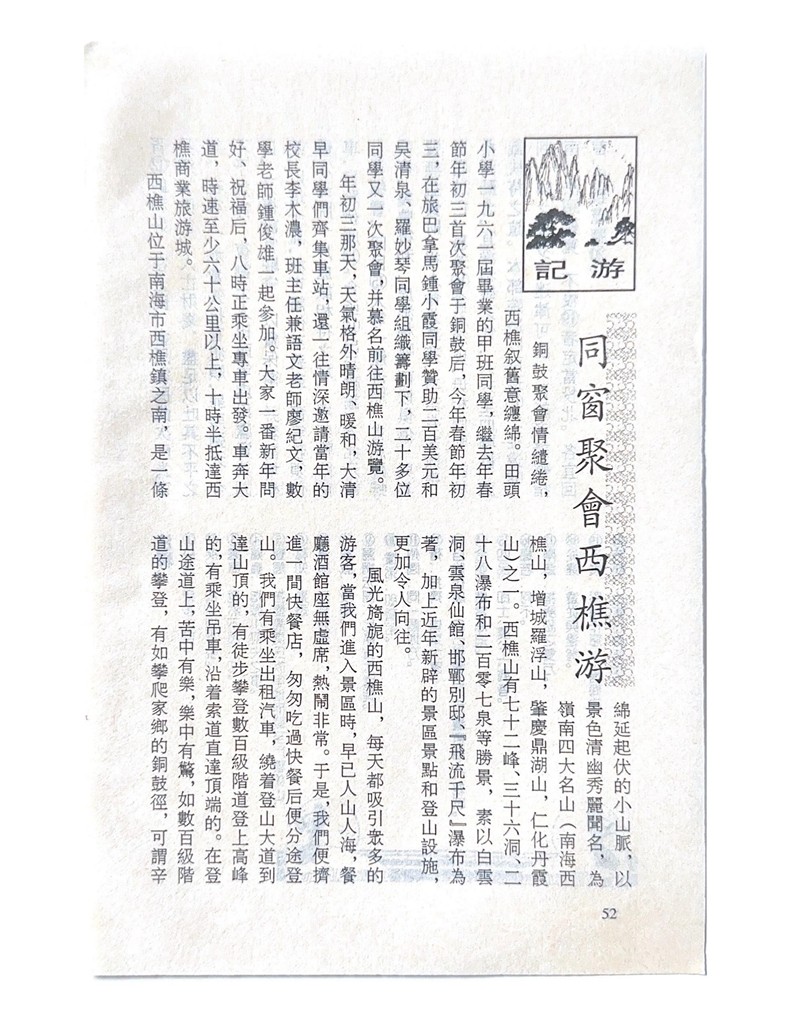 游記
同窗聚會西樵游
銅鼓聚會情繾綣，
西樵叙舊意纏綿。田頭
小學一九六一屆畢業的甲班同學，繼去年春
節年初三首次聚會于銅鼓后，今年春節年初
三，在旅巴拿馬鍾小霞同學贊助二百美元和
吳清泉、羅妙琴同學組織籌劃下，二十多位
同學又一次聚會，并慕名前往西樵山游覽。
年初三那天，天氣格外晴朗、暖和，大清
早同學們齊集車站，還一往情深邀請當年的
校長李木濃，班主任兼語文老師廖紀文，數
學老師鍾俊雄一起參加。大家一番新年問
好、祝福后，八時正乘坐專車出發。車奔大
道，時速至少六十公里以上，十時半抵達西
樵商業旅游城。
西樵山位于南海市西樵鎮之南，是一條
綿延起伏的小山脈，以
景色清幽秀麗聞名，為
嶺南四大名山（南海西
樵山，增城羅浮山，肇慶鼎湖山，仁化丹霞
山）之一。西樵山有七十二峰、三十六洞、二
十八瀑布和二百零七泉等勝景，素以白雲
洞、雲泉仙館、邯鄲別邸、『飛流千尺』瀑布為
著，加上近年新辟的景區景點和登山設施，
更加令人向往。
風光旖旎的西樵山，每天都吸引衆多的
游客，當我們進入景區時，早已人山人海，餐
廳酒館座無虛席，熱鬧非常。于是，我們便擠
進一間快餐店，匆匆吃過快餐后便分途登
山。我們有乘坐出租汽車，繞着登山大道到
達山頂的，有徒步攀登數百級階道登上高峰
的，有乘坐吊車，沿着索道直達頂端的。在登
山途道上，苦中有樂，樂中有驚，如數百級階
道的攀登，有如攀爬家鄉的銅鼓徑，可謂辛
52